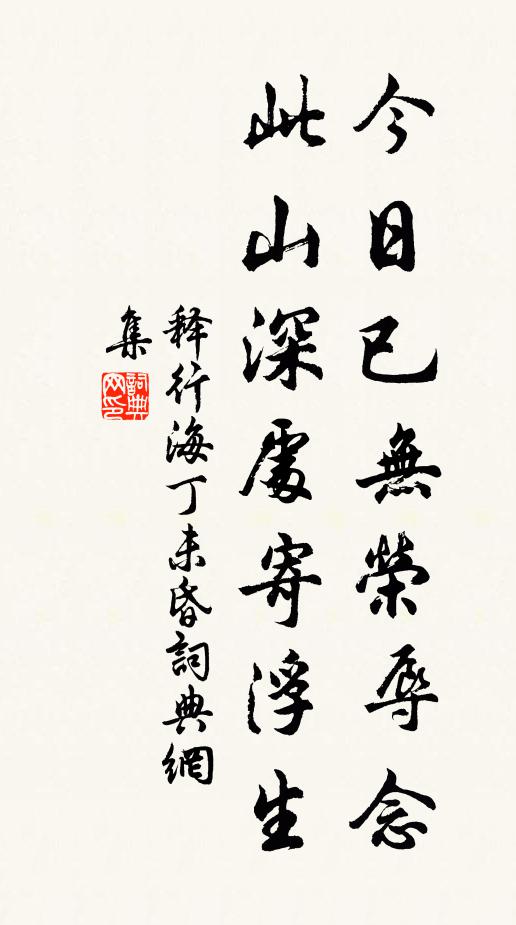 今日已無榮辱念
此山深處寄浮生
释行海丁未昏詞典網
集
詞典网印